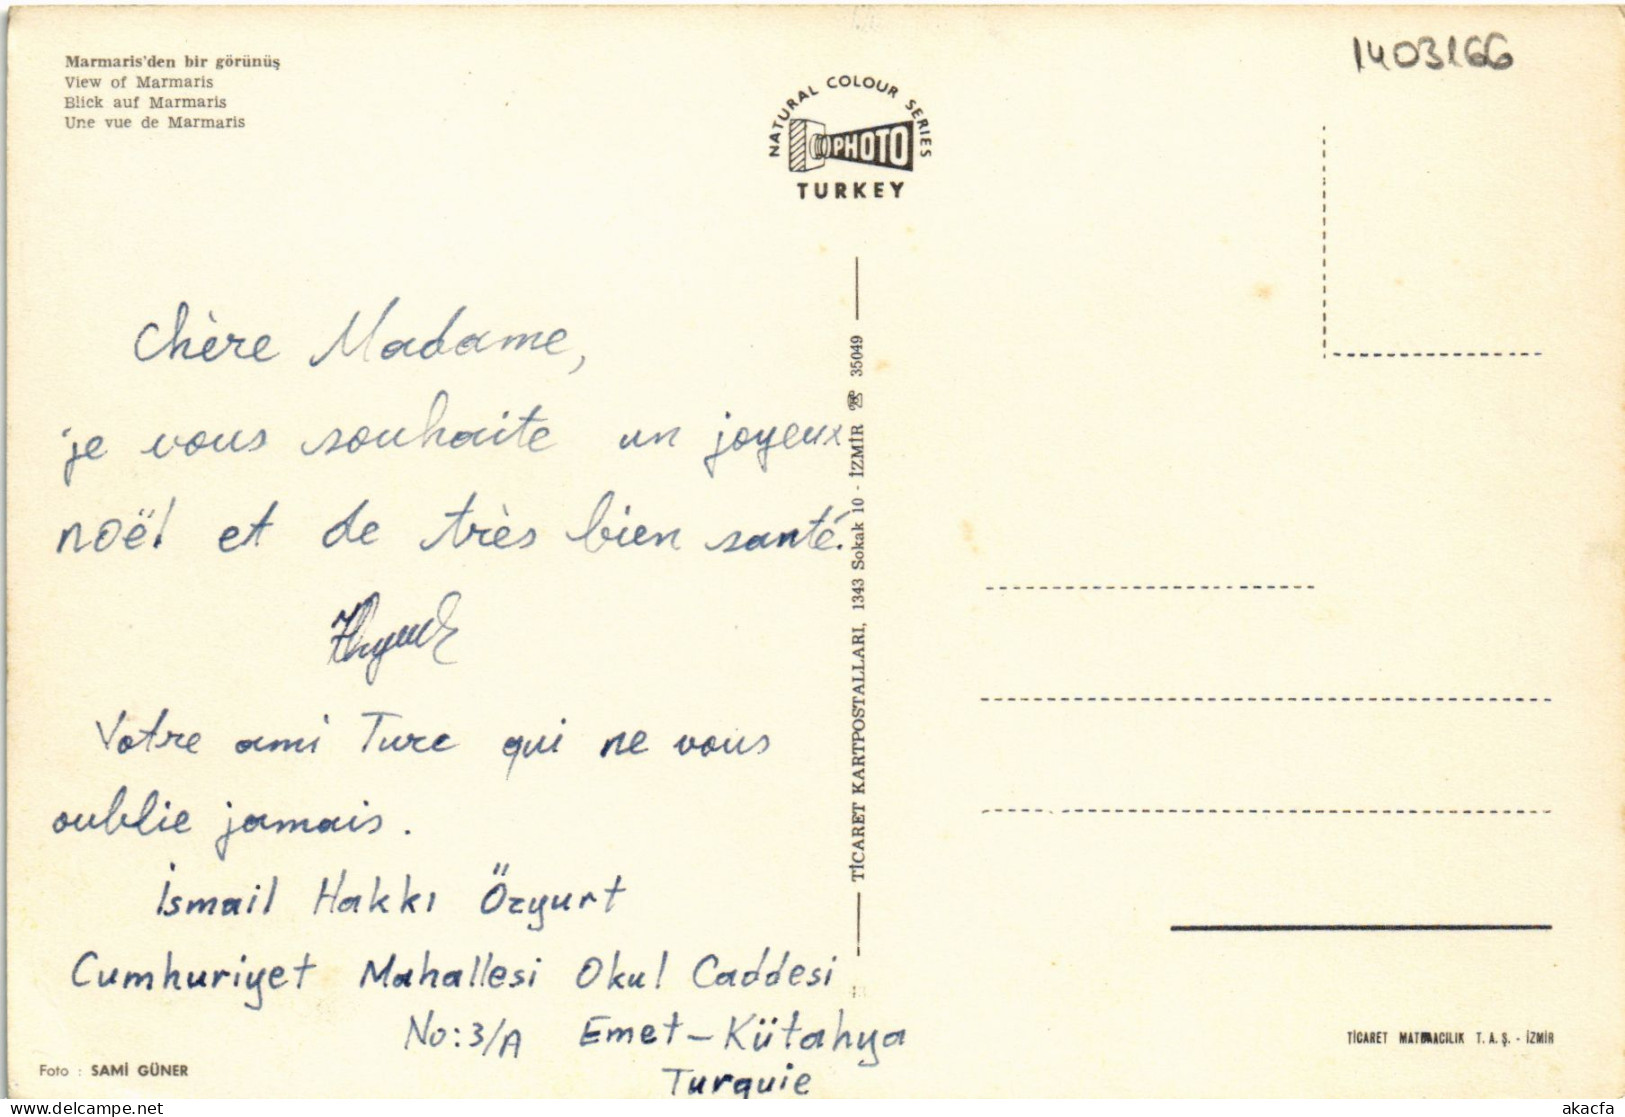 Marmaris'den bir görünüş
View of Marmaris
Blick auf Marmaris
Une vue de Marmaris
NATURAL COLOUR SERIES
PHOTO
TURKEY
1403166
Chère Madame,
je vous souhaite un joyeux
noël et de très bien santé.
Votre ami Turc qui ne vous
oublie jamais.
İsmail Hakkı Özyurt
Cumhuriyet Mahallesi Okul Caddesi
No:3/A Emet-Kütahya
Turquie
Foto : SAMİ GÜNER
TİCARET KARTPOSTALLARI, 1343 Sokak 10 - İZMİR ☎ 35049
TİCARET MATBAACILIK T. A. Ş. - İZMİR
www.delcampe.net
akacfa